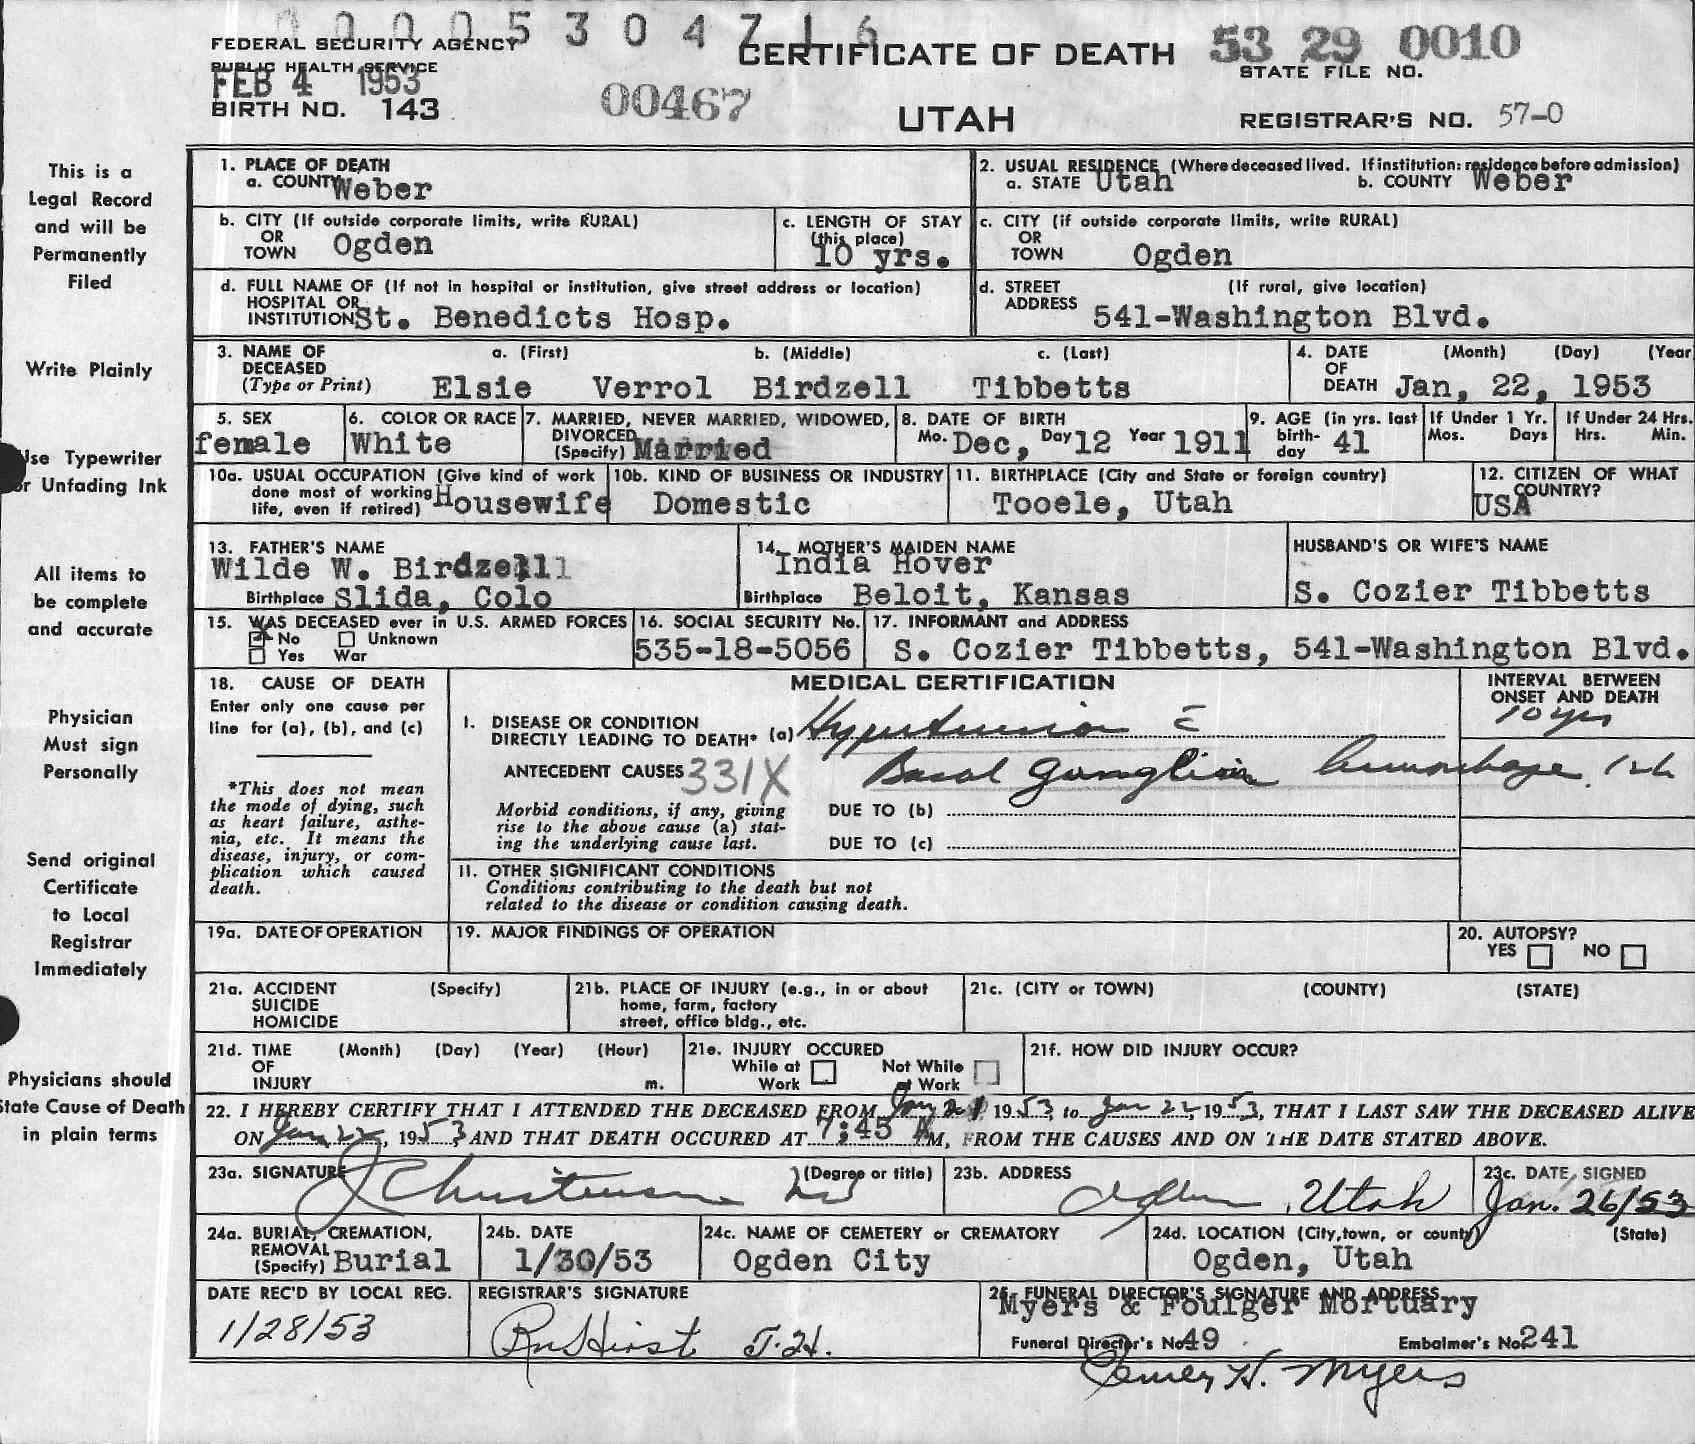 0 0 0 0 5 3 0 4 7 1 6
FEDERAL SECURITY AGENCY
PUBLIC HEALTH SERVICE
FEB 4 1953
BIRTH NO. 143
00467
CERTIFICATE OF DEATH
UTAH
53 29 0010
STATE FILE NO.
REGISTRAR'S NO. 57-0
This is a
Legal Record
and will be
Permanently
Filed
Write Plainly
Use Typewriter
or Unfading Ink
All items to
be complete
and accurate
Physician
Must sign
Personally
Send original
Certificate
to Local
Registrar
Immediately
Physicians should
State Cause of Death
in plain terms
1. PLACE OF DEATH
a. COUNTY Weber
2. USUAL RESIDENCE (Where deceased lived. If institution: residence before admission)
a. STATE Utah b. COUNTY Weber
b. CITY (If outside corporate limits, write RURAL)
OR
TOWN Ogden
c. LENGTH OF STAY
(this place)
10 yrs.
c. CITY (if outside corporate limits, write RURAL)
OR
TOWN Ogden
d. FULL NAME OF (If not in hospital or institution, give street address or location)
HOSPITAL OR
INSTITUTION St. Benedicts Hosp.
d. STREET (If rural, give location)
ADDRESS 541-Washington Blvd.
3. NAME OF a. (First) b. (Middle) c. (Last)
DECEASED
(Type or Print) Elsie Verrol Birdzell Tibbetts
4. DATE (Month) (Day) (Year
OF
DEATH Jan, 22, 1953
5. SEX
female
6. COLOR OR RACE
White
7. MARRIED, NEVER MARRIED, WIDOWED,
DIVORCED
(Specify) Married
8. DATE OF BIRTH
Mo. Dec, Day 12 Year 1911
9. AGE (in yrs. last
birth-
day 41
If Under 1 Yr.
Mos. Days
If Under 24 Hrs.
Hrs. Min.
10a. USUAL OCCUPATION (Give kind of work
done most of working
life, even if retired) Housewife
10b. KIND OF BUSINESS OR INDUSTRY
Domestic
11. BIRTHPLACE (City and State or foreign country)
Tooele, Utah
12. CITIZEN OF WHAT
COUNTRY?
USA
13. FATHER'S NAME
Wilde W. Birdzell
Birthplace Slida, Colo
14. MOTHER'S MAIDEN NAME
India Hover
Birthplace Beloit, Kansas
HUSBAND'S OR WIFE'S NAME
S. Cozier Tibbetts
15. WAS DECEASED ever in U.S. ARMED FORCES
No Unknown
Yes War
16. SOCIAL SECURITY No.
535-18-5056
17. INFORMANT and ADDRESS
S. Cozier Tibbetts, 541-Washington Blvd.
18. CAUSE OF DEATH
Enter only one cause per
line for (a), (b), and (c)
*This does not mean
the mode of dying, such
as heart failure, asthe-
nia, etc. It means the
disease, injury, or com-
plication which caused
death.
MEDICAL CERTIFICATION
INTERVAL BETWEEN
ONSET AND DEATH
I. DISEASE OR CONDITION
DIRECTLY LEADING TO DEATH* (a) Hypertension c̄ 10 yrs
ANTECEDENT CAUSES 331X Basal Ganglion hemorrhage
Morbid conditions, if any, giving
rise to the above cause (a) stat-
ing the underlying cause last.
DUE TO (b)
DUE TO (c)
11. OTHER SIGNIFICANT CONDITIONS
Conditions contributing to the death but not
related to the disease or condition causing death.
19a. DATE OF OPERATION
19. MAJOR FINDINGS OF OPERATION
20. AUTOPSY?
YES NO
21a. ACCIDENT (Specify)
SUICIDE
HOMICIDE
21b. PLACE OF INJURY (e.g., in or about
home, farm, factory
street, office bldg., etc.
21c. (CITY or TOWN) (COUNTY) (STATE)
21d. TIME (Month) (Day) (Year) (Hour)
OF
INJURY m.
21e. INJURY OCCURED
While at Not While
Work at Work
21f. HOW DID INJURY OCCUR?
22. I HEREBY CERTIFY THAT I ATTENDED THE DECEASED FROM Jan 21 1953, to Jan 22, 1953, THAT I LAST SAW THE DECEASED ALIVE
ON Jan 22, 1953 AND THAT DEATH OCCURED AT 7:45 A M, FROM THE CAUSES AND ON THE DATE STATED ABOVE.
23a. SIGNATURE (Degree or title)
J Christensen MD
23b. ADDRESS
Ogden, Utah
23c. DATE SIGNED
Jan. 26/53
24a. BURIAL, CREMATION,
REMOVAL
(Specify) Burial
24b. DATE
1/30/53
24c. NAME OF CEMETERY or CREMATORY
Ogden City
24d. LOCATION (City, town, or county) (State)
Ogden, Utah
DATE REC'D BY LOCAL REG.
1/28/53
REGISTRAR'S SIGNATURE
25. FUNERAL DIRECTOR'S SIGNATURE AND ADDRESS
Myers & Foulger Mortuary
Funeral Director's No 49 Embalmer's No 241
H. Myers